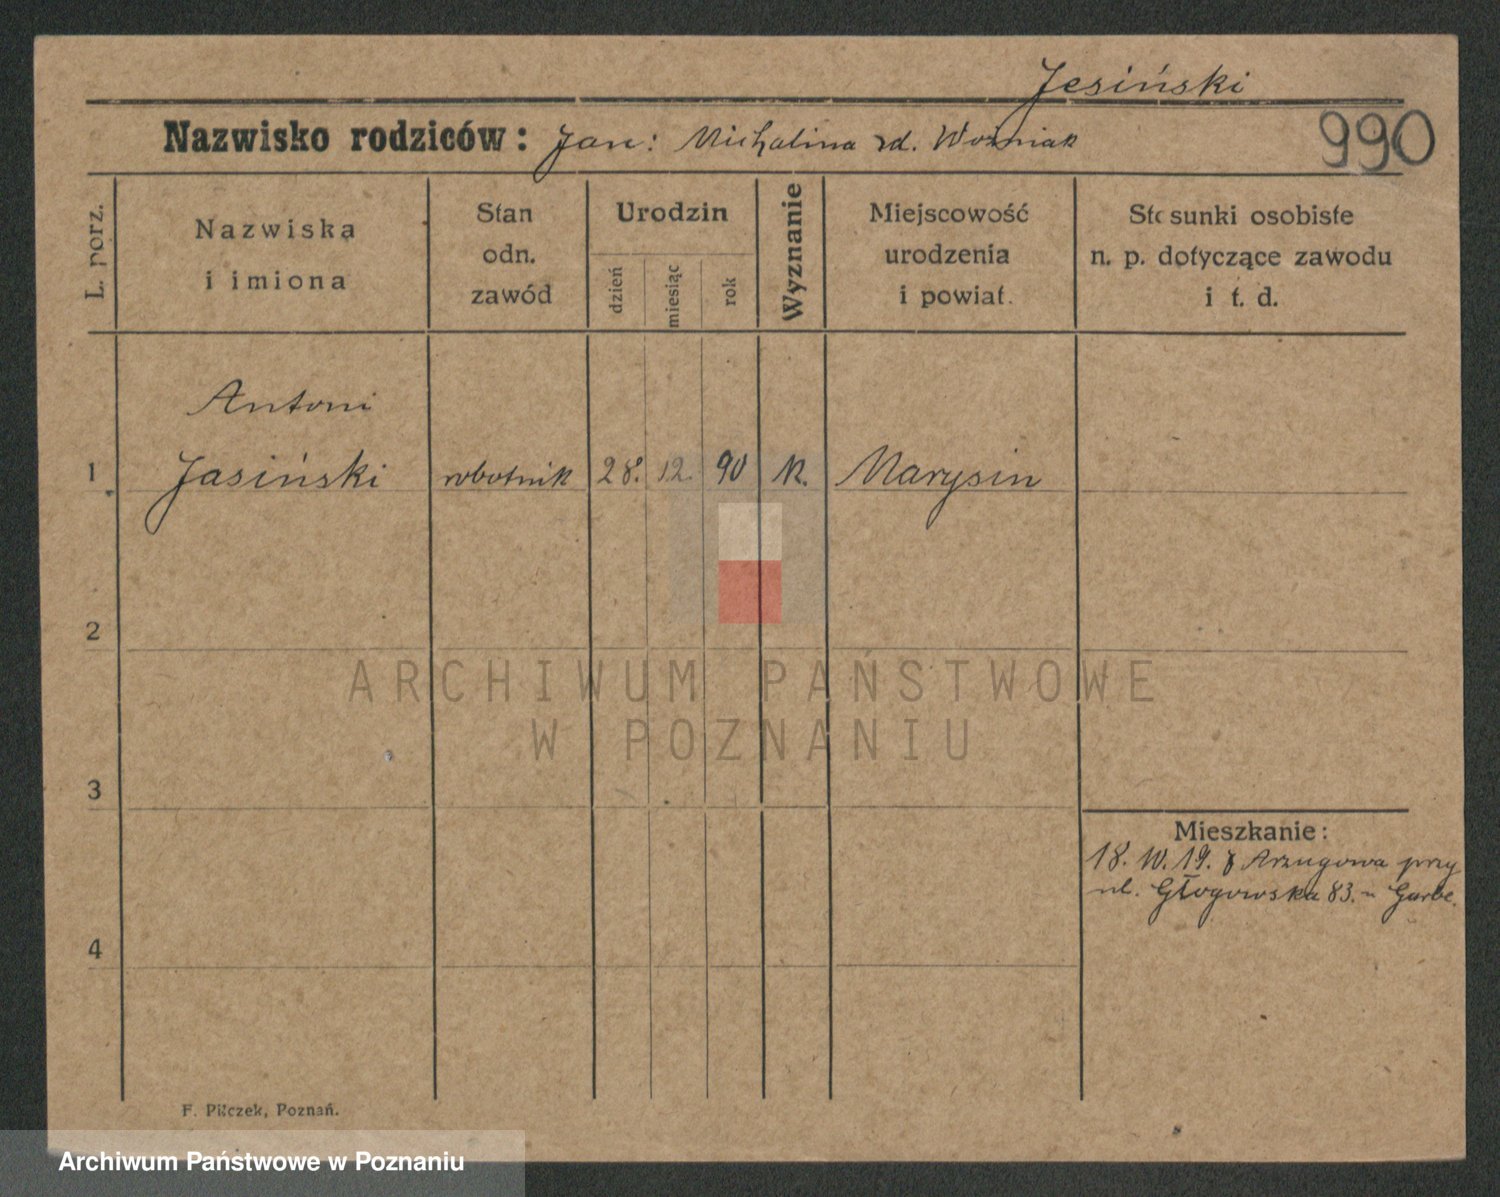 Jesiński
Nazwisko rodziców: Jan: Michalina zd. Woźniak
990
L. porz.
Nazwiska
i imiona
Stan
odn.
zawód
Urodzin
dzień
miesiąc
rok
Wyznanie
Miejscowość
urodzenia
i powiat.
Stosunki osobiste
n. p. dotyczące zawodu
i t. d.
Antoni
1 Jasiński robotnik 28. 12. 90 K. Marysin
2
ARCHIWUM PAŃSTWOWE
W POZNANIU
3
Mieszkanie:
18. 10. 19. z przy
ul. Głogowska 83.
4
F. Pilczek, Poznań.
Archiwum Państwowe w Poznaniu